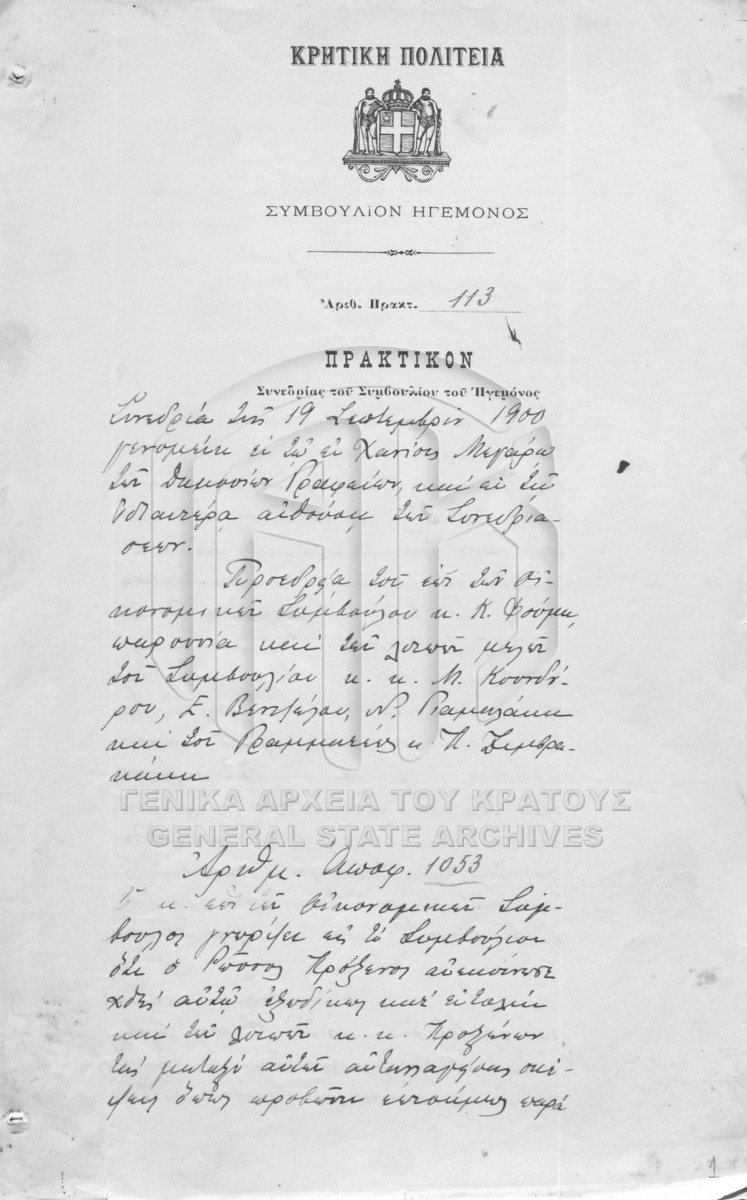 ΚΡΗΤΙΚΗ ΠΟΛΙΤΕΙΑ
ΣΥΜΒΟΥΛΙΟΝ ΗΓΕΜΟΝΟΣ
Ἀριθ. Πρακτ. 113
ΠΡΑΚΤΙΚΟΝ
Συνεδρίας τοῦ Συμβουλίου τοῦ Ἡγεμόνος
Συνεδρία τῆς 19 Σεπτεμβρίου 1900
γενομένη ἐν τῷ ἐν Χανίοις Μεγάρῳ
τῶν Δημοσίων Γραφείων, καὶ ἐν τῇ
ἰδιαιτέρᾳ αἰθούσῃ τῶν Συνεδριά-
σεων.
Προεδρίᾳ τοῦ ἐπὶ τῶν Οἰ-
κονομικῶν Συμβούλου κ. Κ. Φούμη,
παρουσίᾳ καὶ τῶν λοιπῶν μελῶν
τοῦ Συμβουλίου κ. κ. Μ. Κουνδού-
ρου, Ε. Βενιζέλου, Ν. Γιαμαλάκη
καὶ τοῦ Γραμματέως κ. Π. Ζυμβρα-
κάκη
ΓΕΝΙΚΑ ΑΡΧΕΙΑ ΤΟΥ ΚΡΑΤΟΥΣ
GENERAL STATE ARCHIVES
Ἀριθμ. Ἀποφ. 1053
Ὁ κ. ἐπὶ τῶν Οἰκονομικῶν Σύμ-
βουλος γνωρίζει εἰς τὸ Συμβούλιον
ὅτι ὁ Ρῶσσος Πρόξενος ἀνεκοίνωσε
χθὲς αὐτῷ ἐξωδίκως κατ' ἐντολὴν
καὶ τῶν λοιπῶν κ. κ. Προξένων
τὰς μεταξὺ αὐτῶν ἀνταλλαγείσας σκέ-
ψεις ὅπως προβῶσιν παρὰ
1